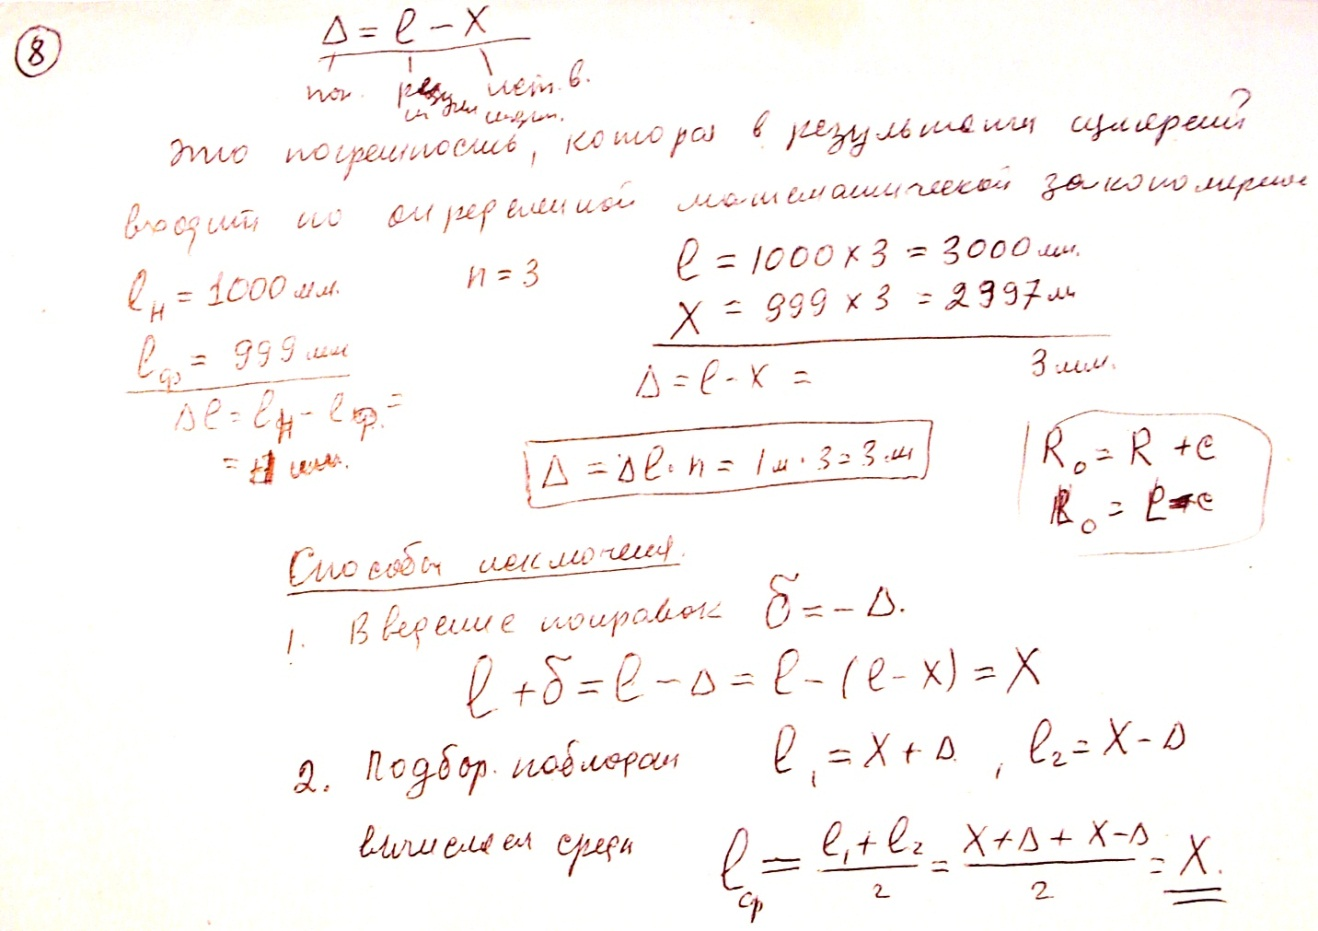 8
Δ = l − X
пог. резул. ист. в.
измер.
Это погрешность, которая в результаты измерений
входит по определенной математической закономернос
lн = 1000 мм. n = 3 l = 1000 × 3 = 3000 мм.
X = 999 × 3 = 2997 м
lф = 999 мм
Δ = l - X = 3 мм.
Δl = lн − lф. =
= 1 мм.
Δ = Δl · n = 1м · 3 = 3 м
R₀ = R + c
R₀ = L - c
Способы исключения.
1. Введение поправок δ = − Δ.
l + δ = l − Δ = l − (l - X) = X
2. Подбор. наблюдан l₁ = X + Δ. , l₂ = X − Δ
вычисляем средн lср = (l₁ + l₂)/2 = (X + Δ + X − Δ)/2 = X.